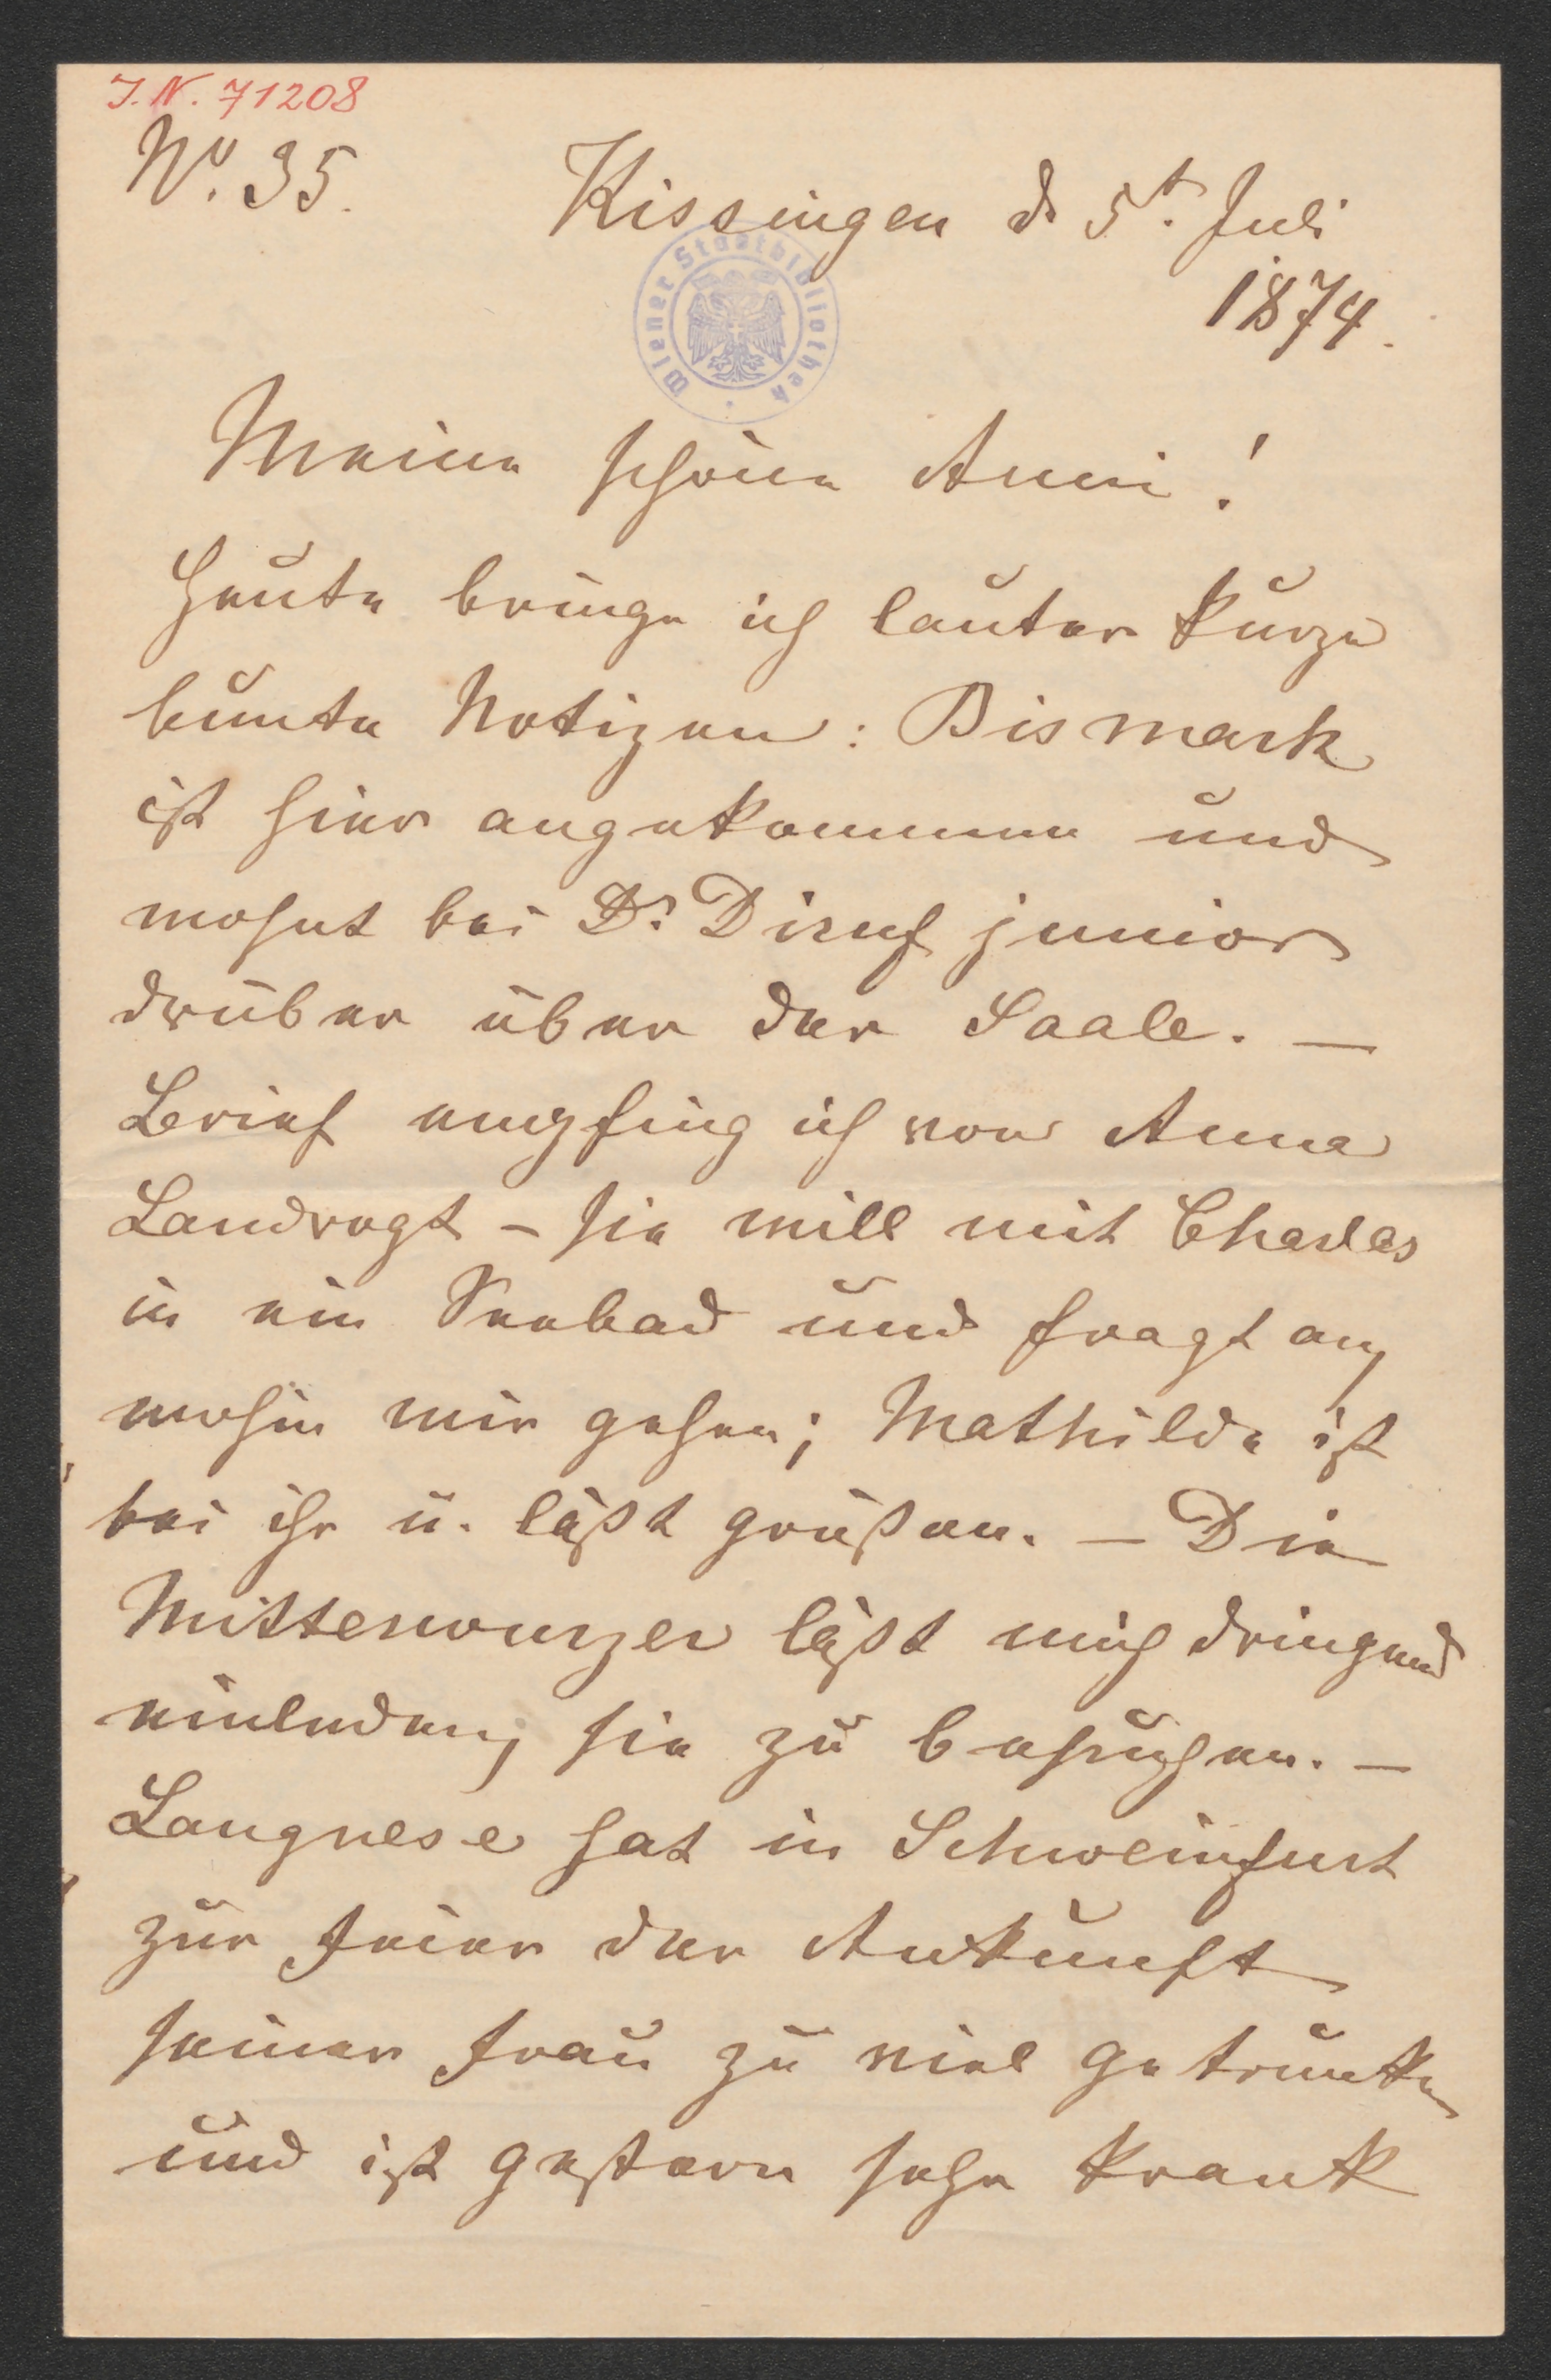 J.N. 71208
No. 35.
Kissingen d. 5t. Juli
1874.
Wiener Stadtbibliothek
Meine schöne Anni!
Heute bringe ich lauter kurze
bunte Notizen: Bismark
ist hier angekommen und
wohnt bei Dr. Diruf junior
drüben über der Saale. —
Brief empfing ich von Anna
Landvogt – sie will mit Charles
in ein Seebad und fragt an,
wohin wir gehen; Mathilde ist
bei ihr u. läßt grüßen. — Die
Mitterwurzer läßt mich dringend
einladen, sie zu besuchen. —
Langnese hat in Schweinfurt
zur Feier der Ankunft
seiner Frau zu viel getrunken
und ist gestern sehr krank